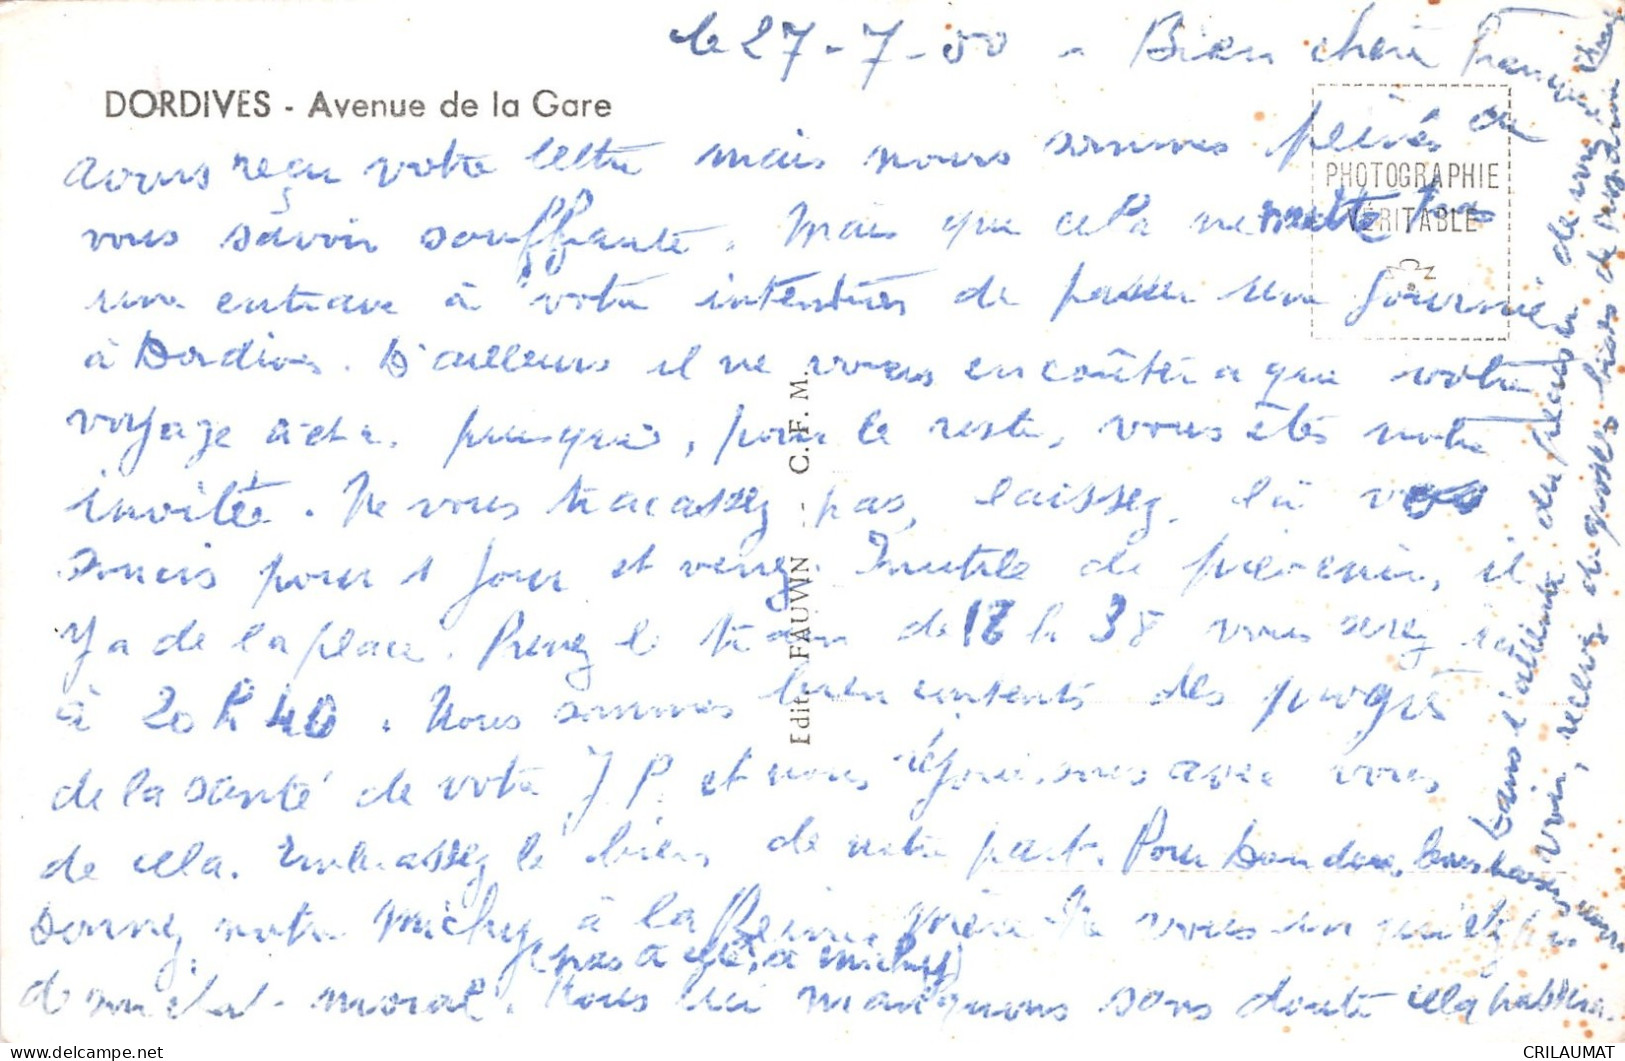 le 27-7-50 - Bien chère
DORDIVES - Avenue de la Gare
avons reçu votre lettre mais nous sommes peinés de
PHOTOGRAPHIE
VÉRITABLE
vous savoir souffrante. Mais que cela ne mette pas
une entrave à votre intentions de passer une journée
à Dordives. D'ailleurs il ne vous en coûtera que votre
voyage puisque, pour le reste, vous êtes notre
invitée. Ne vous tracassez pas, laissez là vos
soucis pour 1 jour et venez. Inutile de prévenir, il
y a de la place. Prenez le train de 18 h 38 vous serez ici
à 20 h 40. Nous sommes bien contents des progrès
de la santé de votre J P. et nous réjouissons avec vous
de cela. Embrassez le bien de notre part. Pour
Donnez notre Michy à la Reine Mère. Ne vous inquiétez pas
(pas à elle, à Michy)
de mon état moral. Nous lui manquons sans doute cela passera.
Dans l'attente du plaisir de vous
voir, recevez de gros
Edit. FAUVIN -- C. F. M.
CRILAUMAT